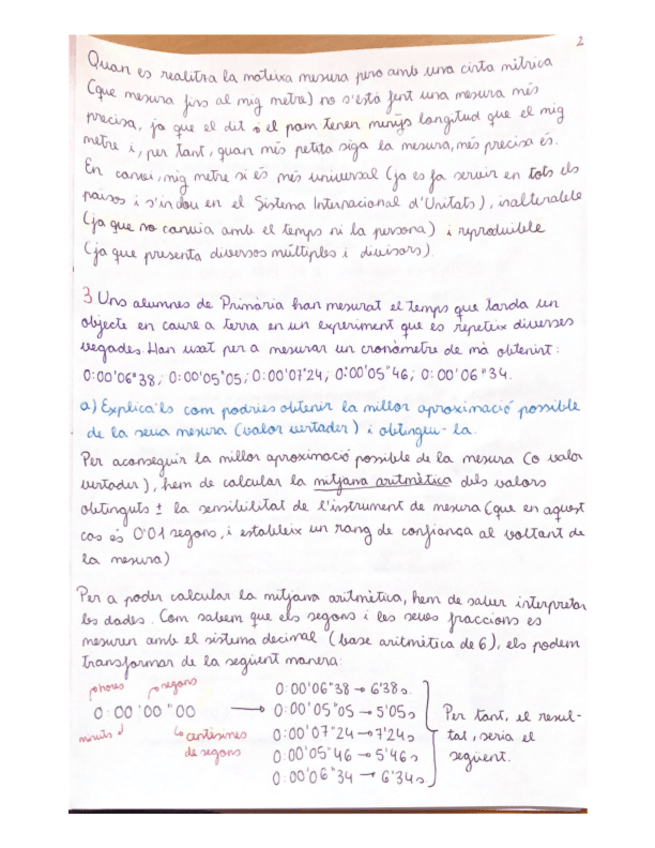 2
Quan es realitza la mateixa mesura pero amb una cinta mètrica
(que mesura fins al mig metre) no s'està fent una mesura més
precisa, ja que el dit i el pam tenen menys longitud que el mig
metre i, per tant, quan més petita siga la mesura, més precisa és.
En canvi, mig metre si és més universal (ja es fa servir en tots els
països i s'inclou en el Sistema Internacional d'Unitats), inalterable
(ja que no canvia amb el temps ni la persona) i reproduible
(ja que presenta diversos múltiples i divisors).
3 Uns alumnes de Primària han mesurat el temps que tarda un
objecte en caure a terra en un experiment que es repeteix diverses
vegades. Han usat per a mesurar un cronòmetre de mà obtenint:
0:00'06"38; 0:00'05"05; 0:00'07"24; 0:00'05"46; 0:00'06"34.
a) Explica'ls com podries obtenir la millor aproximació possible
de la seua mesura (valor vertader) i obtingeu-la.
Per aconseguir la millor aproximació possible de la mesura (o valor
vertader), hem de calcular la mitjana aritmètica dels valors
obtinguts ± la sensibilitat de l'instrument de mesura (que en aquest
cas és 0'01 segons, i estableix un rang de confiança al voltant de
la mesura)
Per a poder calcular la mitjana aritmètica, hem de saber interpretar
les dades. Com sabem que els segons i les seues fraccions es
mesuren amb el sistema decimal (base aritmètica de 6), els podem
transformar de la següent manera:
hores segons
0:00'00"00
minuts centèsimes
de segons
0:00'06"38 → 6'38s.
0:00'05"05 → 5'05s
0:00'07"24 → 7'24s
0:00'05"46 → 5'46s
0:00'06"34 → 6'34s
Per tant, el resul-
tat, seria el
següent.